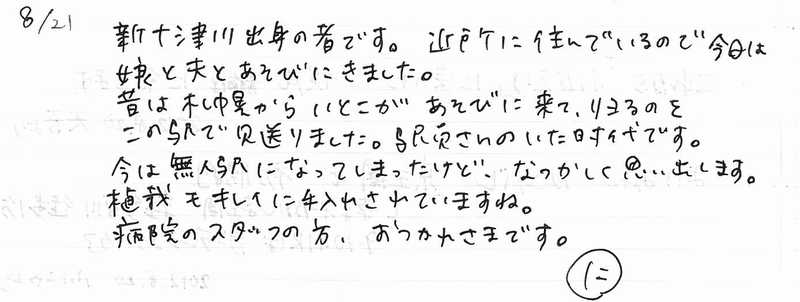 8/21
新十津川出身の者です。近戸ケに住んでいるので今日は
娘と夫とあそびにきました。
昔は札幌からいとこがあそびに来て、リ帰るのを
この駅で見送りました。駅員さんのいた時代です。
今は無人駅になってしまったけど、なつかしく思い出します。
植栽もキレイに手入れされていますね。
病院のスタッフの方、おつかれさまです。
(に)